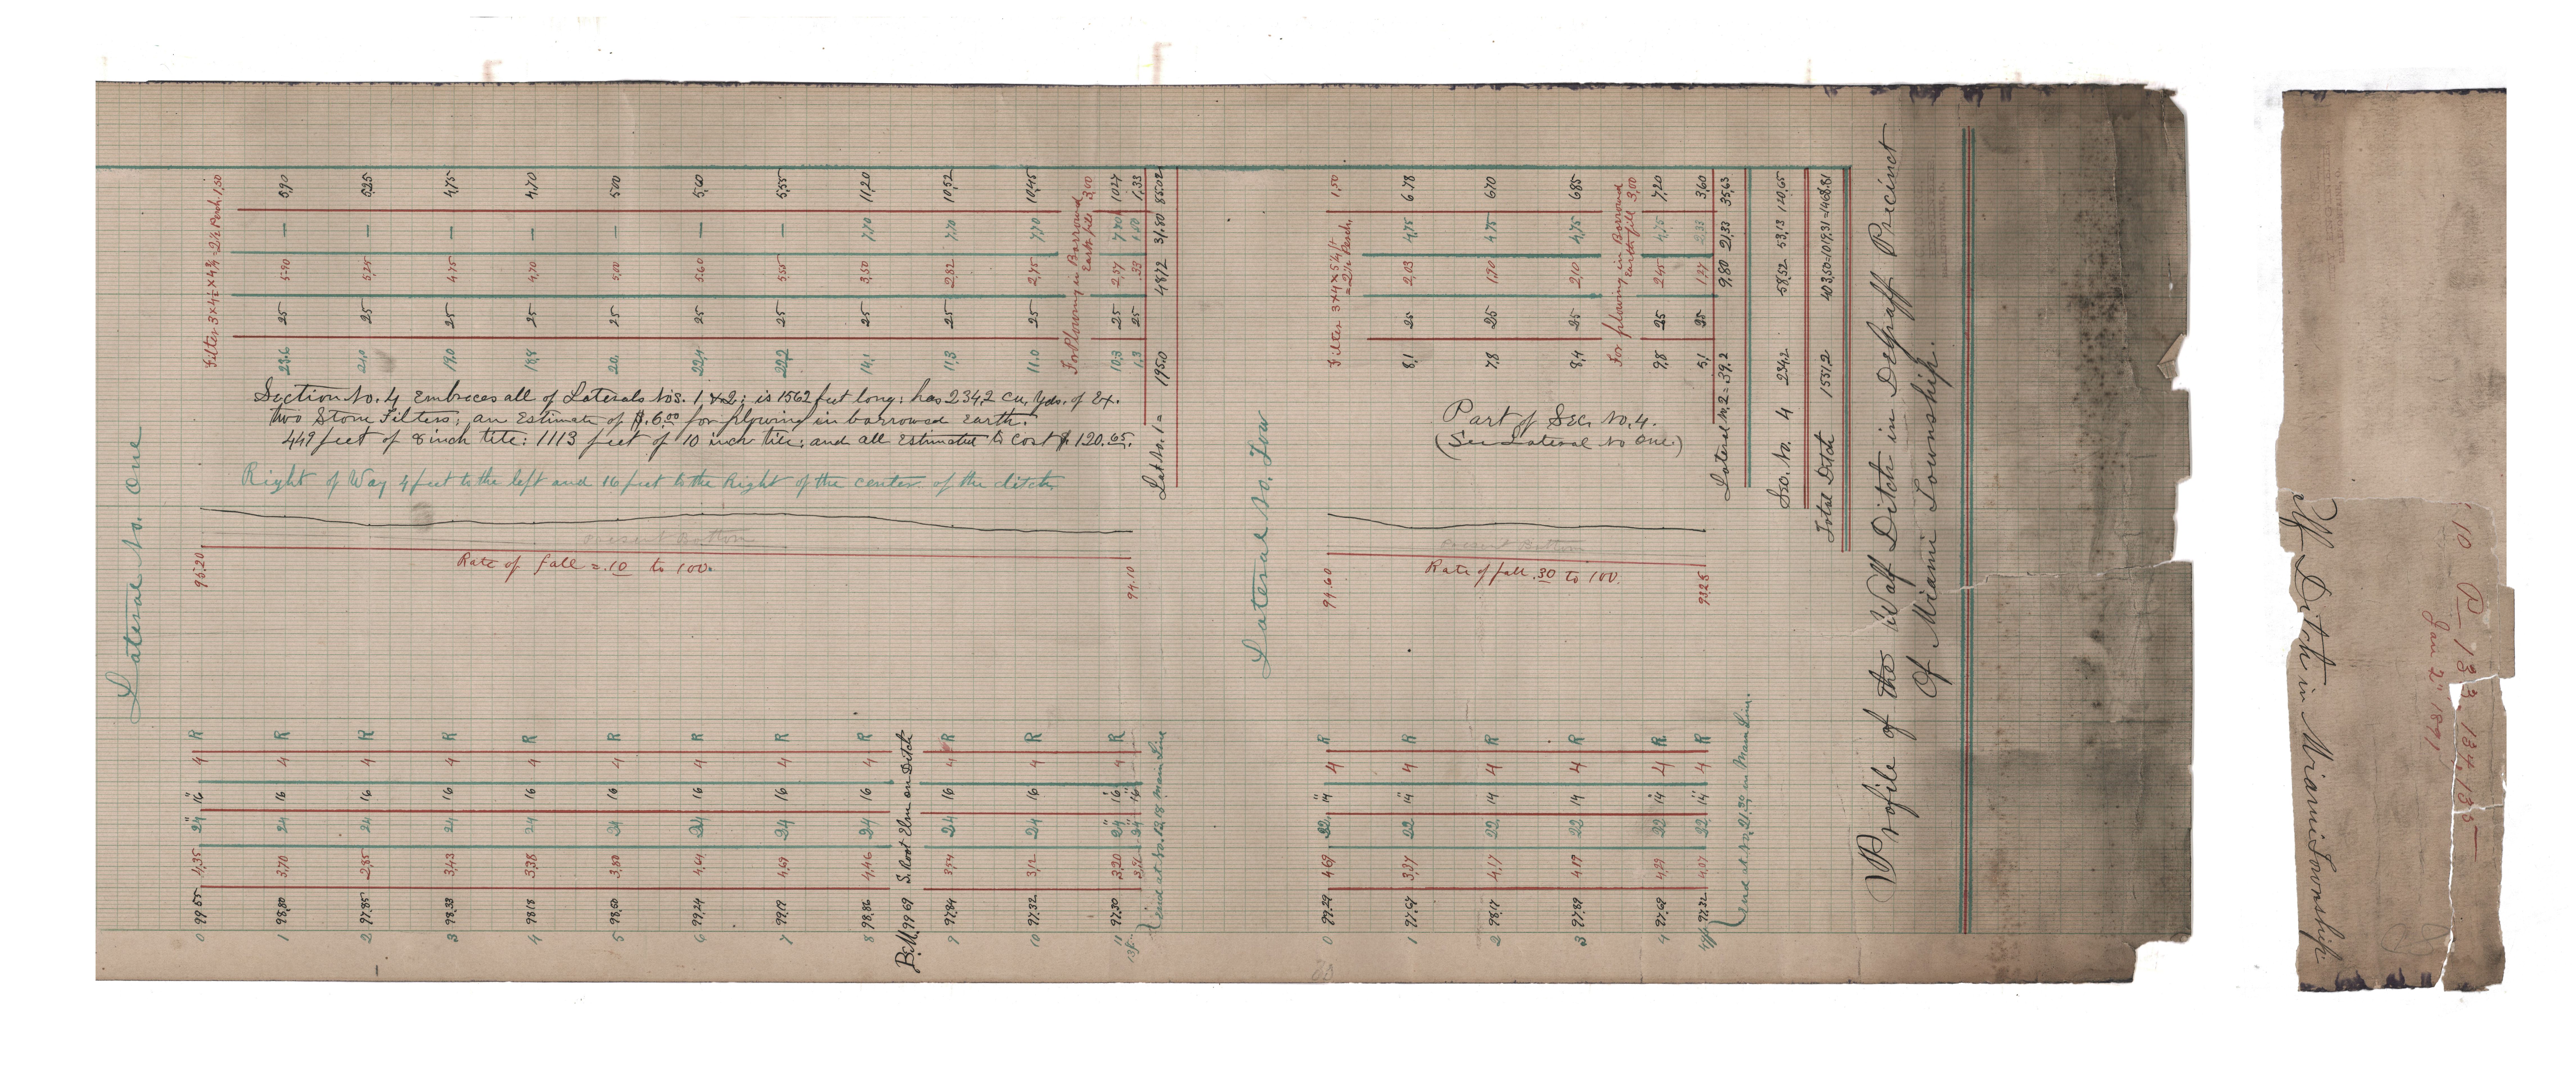 Lateral No. One
Filter 3 x 4½ x 4¾ = 2½ Perch. 1,50
0 99.55 4,35 24" 16" 4 R
1 98,80 3,70 24 16 4 R 23.6 25 5.90 — 5,90
2 97.85 2,85 24 16 4 R 21.0 25 5,25 — 5,25
3 98.33 3,43 24 16 4 R 19.0 25 4,75 — 4,75
4 98.18 3,38 24 16 4 R 18,8 25 4,70 — 4,70
5 98,50 3,80 24 16 4 R 20. 25 5,00 — 5,00
6 99,24 4,64 24 16 4 R 22,4 25 5,60 — 5,60
7 99,19 4,69 24 16 4 R 22,2 25 5,55 — 5,55
8 98,86 4,46 24 16 4 R 14,1 25 3,50 7,70 11,20
B.M. 99 69 S. Root Elm on Ditch
9 97,84 3,54 24 16 4 R 11,3 25 2,82 7,70 10,52
10 97,32 3,12 24 16 4 R 11.0 25 2,75 7,70 10,45
For Plowing in Borrowed
Earth fill 3,00
11 97,30 3,20 24" 16" 4 R 10,3 25 2,57 7,70 10,27
1,3 25 ,33 1,00 1,33
end at No. 12,18 Main Line
Section No. 4 Embraces all of Laterals Nos. 1, & 2; is 1562 feet long; has 234,2 cu. yds. of Ex.
two Stone Filters; an Estimate of $.6.00 for plowing in borrowed Earth.
449 feet of 8 inch tile: 1113 feet of 10 inch tile; and all Estimated to cost $ 120.65.
Right of Way 4 feet to the left and 16 feet to the Right of the center of the ditch
95.20
Present Bottom
Rate of fall = .10 to 100.
94.10
Lat No. 1 = 195.0 48,72 31.80 85.02
Lateral No. Tow
Filter 3 x 4 x 5¼ ft
= 2½ Perch. 1,50
0 99.29 4,69 22" 14" 4 R
1 97.67 3,37 22 14" 4 R 8,1 25 2,03 4,75 6.78
2 98,17 4,17 22 14 4 R 7,8 25 1,90 4,75 6,70
3 97.87 4,17 22 14 4 R 8,4 25 2,10 4,75 6,85
For plowing in Borrowed
Earth fill 3,00
4 97,69 4,29 22 14 4 R 9,8 25 2,45 4,75 7,20
97,32 4,07 22" 14" 4 R 5,1 25 1,27 2,33 3,60
end at No, 21,30 in Main Line.
Part of Sec. No. 4.
(See Lateral No One.)
94.60
Present Bottom
Rate of fall .30 to 100.
93.25
Lateral No, 2 = 39.2 9,80 21,33 35,63
Sec. No. 4 234.2 58,52 53,13 120,65
Total Ditch 1551,2 403,50 = 1019,31 = 1468.81
Profile of the Walf Ditch in Degraff Precinct
Of Miami Township.
Ditch in Miami Township
10 P 133, 134, 135
Jan 2" 1891